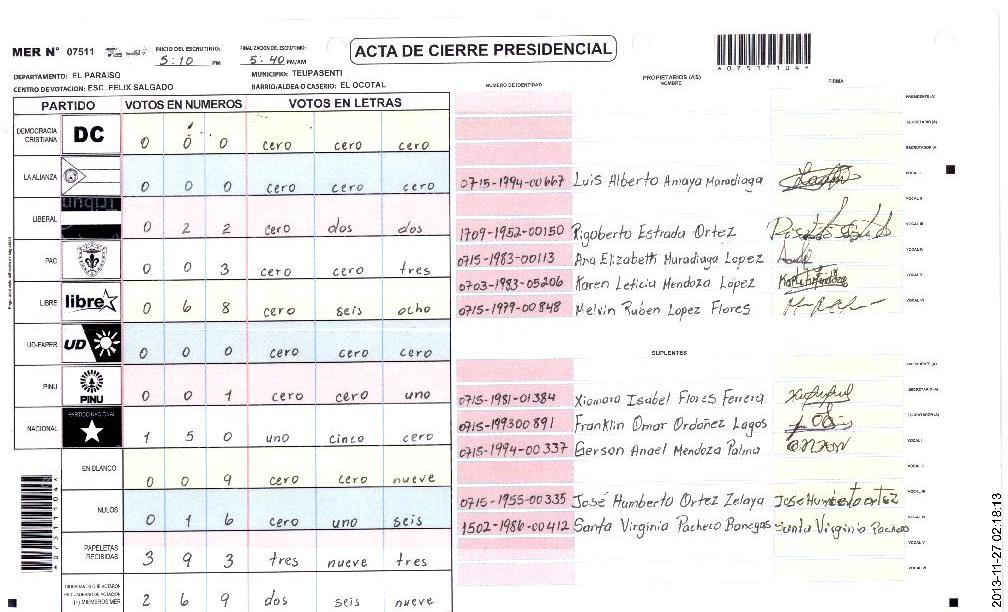 MER N° 07511
INICIO DEL ESCRUTINIO: 5:10 PM
FINALIZACION DEL ESCRUTINIO: 5:40 PM/AM
ACTA DE CIERRE PRESIDENCIAL
*075111104*
DEPARTAMENTO: EL PARAISO
MUNICIPIO: TEUPASENTI
CENTRO DE VOTACION: ESC. FELIX SALGADO
BARRIO/ALDEA O CASERIO: EL OCOTAL
PARTIDO VOTOS EN NUMEROS VOTOS EN LETRAS
DEMOCRACIA CRISTIANA DC 0 0 0 cero cero cero
LA ALIANZA 0 0 0 cero cero cero
LIBERAL 0 2 2 cero dos dos
PAC 0 0 3 cero cero tres
LIBRE libre 0 6 8 cero seis ocho
UD-FAPER UD 0 0 0 cero cero cero
PINU PINU 0 0 1 cero cero uno
NACIONAL PARTIDO NACIONAL 1 5 0 uno cinco cero
EN BLANCO 0 0 9 cero cero nueve
NULOS 0 1 6 cero uno seis
PAPELETAS RECIBIDAS 3 9 3 tres nueve tres
CIUDADANOS QUE VOTARON
(+) MIEMBROS MER 2 6 9 dos seis nueve
NUMERO DE IDENTIDAD
PROPIETARIOS (AS)
NOMBRE
FIRMA
PRESIDENTE (A)
SECRETARIO (A)
ESCRUTADOR (A)
0715-1994-00667 Luis Alberto Amaya Maradiaga VOCAL I
VOCAL II
1709-1952-00150 Rigoberto Estrada Ortez VOCAL III
0715-1983-00113 Ana Elizabeth Muradiaga Lopez VOCAL IV
0703-1983-05206 Karen Leticia Mendoza López VOCAL V
0715-1979-00848 Melvin Rúben Lopez Flores VOCAL VI
SUPLENTES
PRESIDENTE (A)
0715-1981-01384 Xiomara Isabel Flores Ferrera SECRETARIO (A)
0715-199300891 Franklin Omar Ordoñez Lagos ESCRUTADOR (A)
0715-1994-00337 Gerson Anael Mendoza Palma VOCAL I
VOCAL II
0715-1955-00335 José Humberto Ortez Zelaya José Humberto ortez VOCAL III
1502-1986-00412 Santa Virginia Pacheco Banegas Santa Virginia Pacheco VOCAL IV
VOCAL V
VOCAL VI
2013-11-27 02:18:13